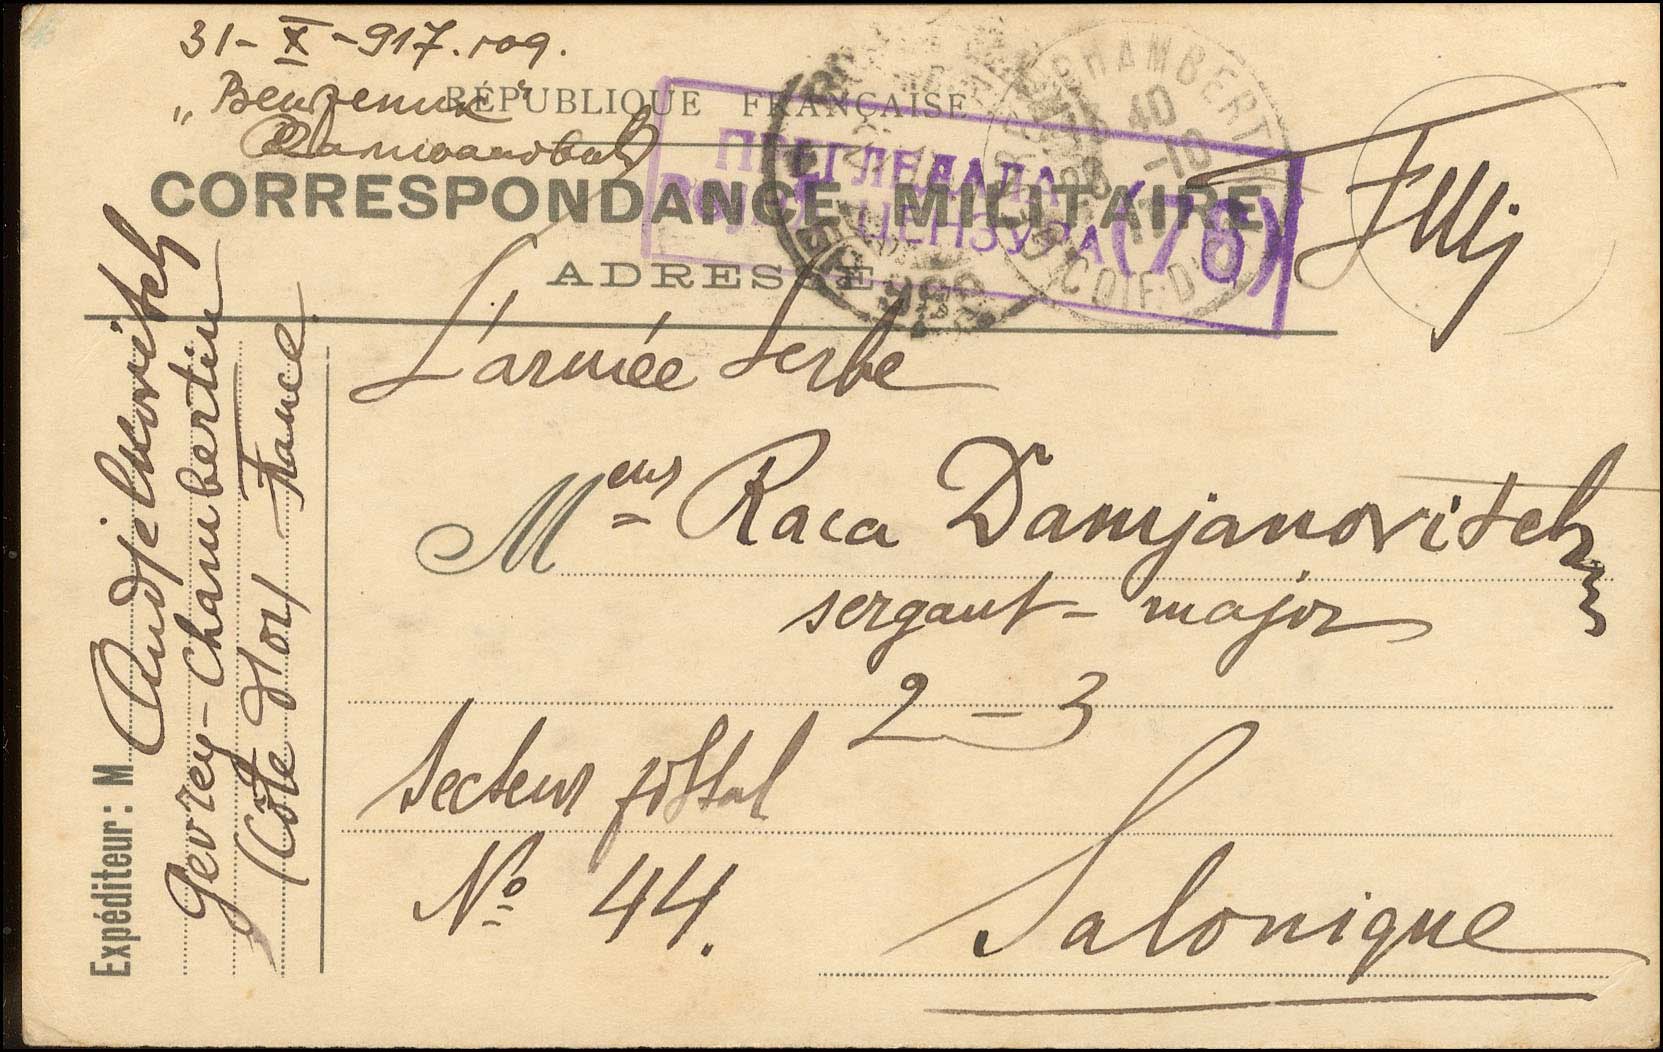 31-X-917. год.
RÉPUBLIQUE FRANÇAISE
CORRESPONDANCE MILITAIRE
ADRESSE
ПРЕГЛЕДАЛА
ЦЕНЗУРА (76)
L'armée Serbe
Mens Raca Damjanovitch
sergant-major
2-3
Secteur postal
No 44.
Salonique
Expéditeur: M Andjelkovitch
Gevrey-Chambertin
(Côte d'or) France